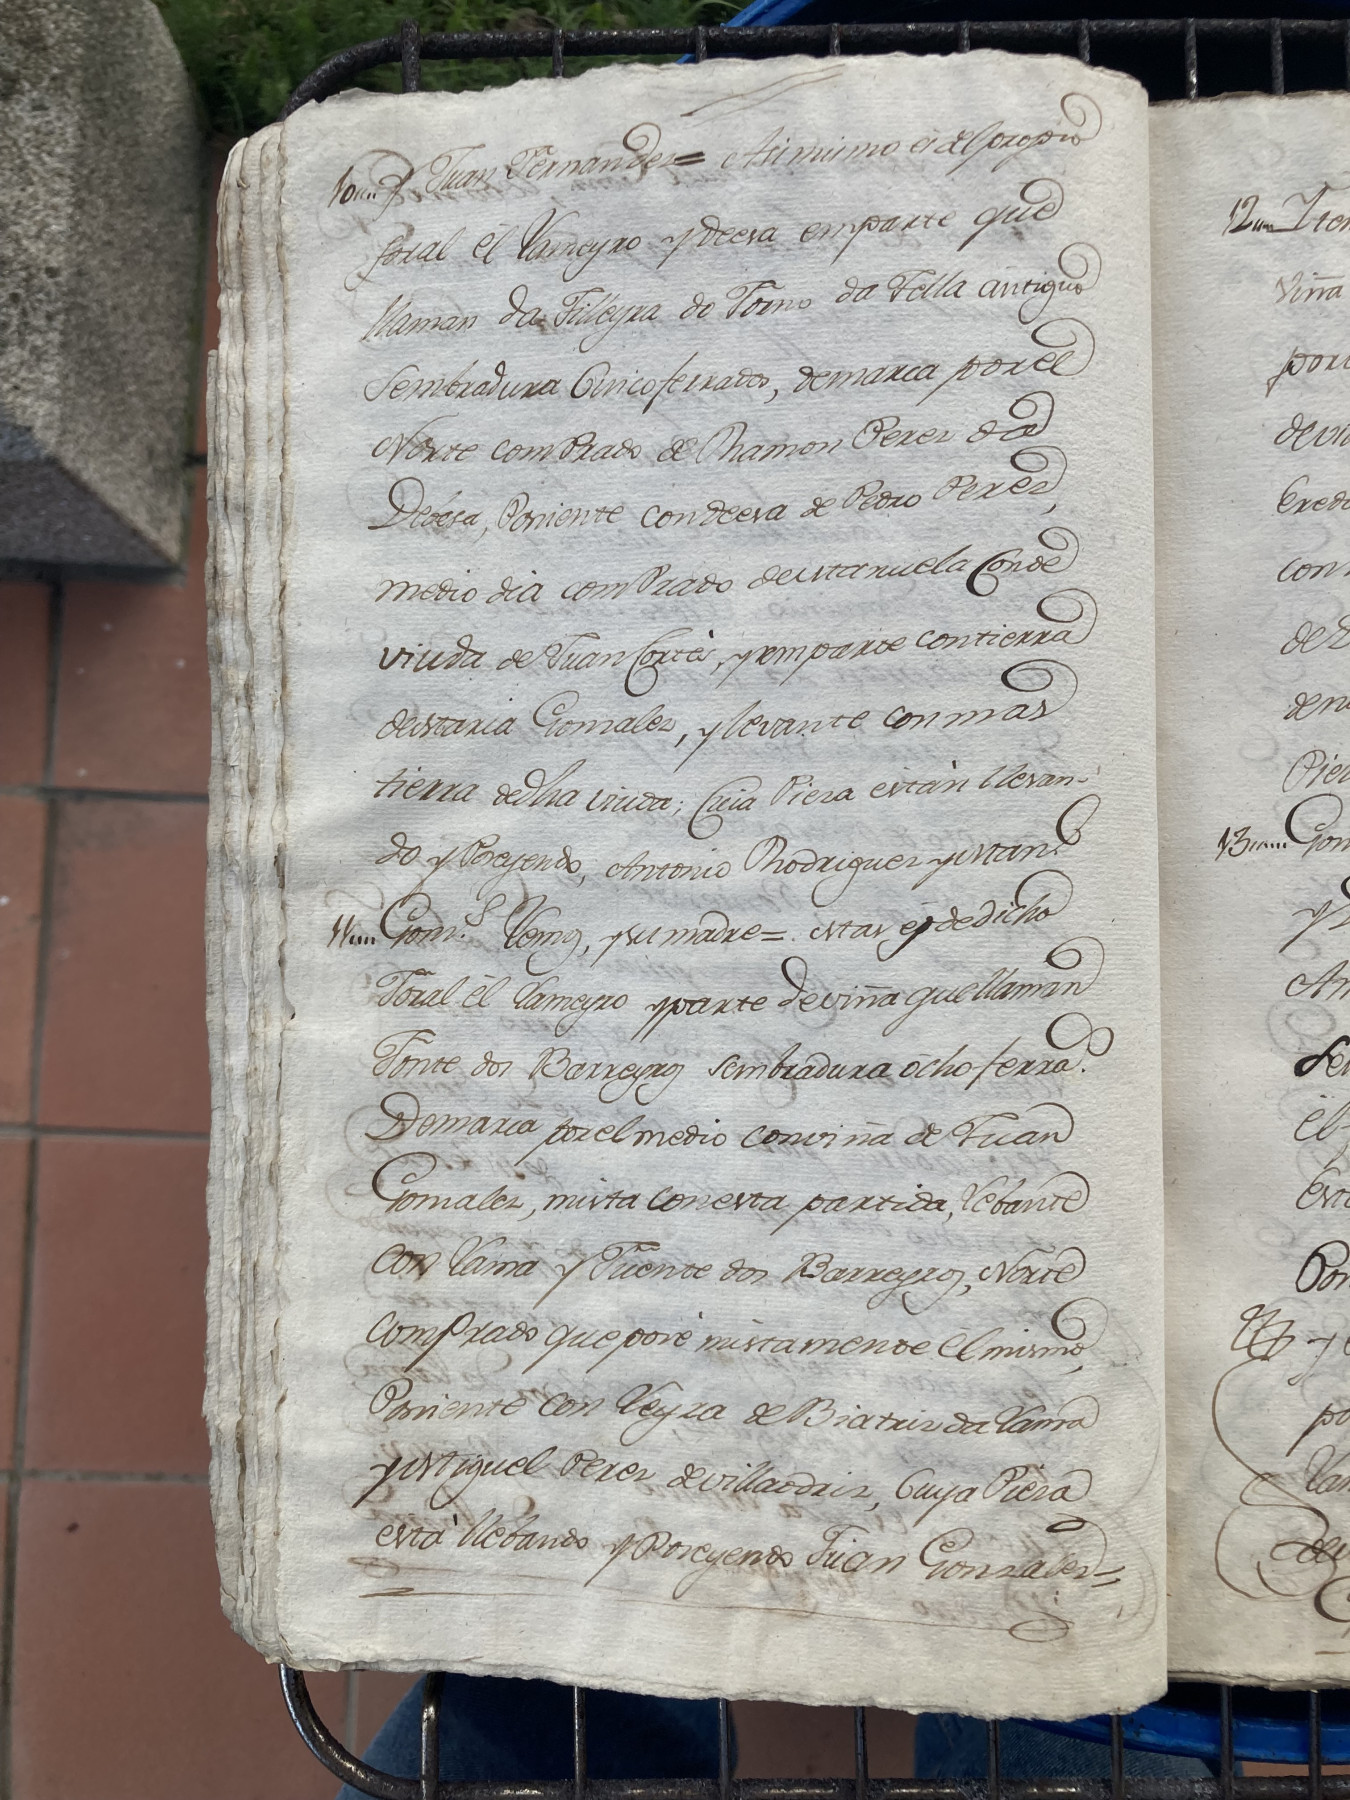 10.... y Juan Fernandez = Asi mismo és del propio
foral él Vameyro y deesa emparte que
llaman da Filleyra do Torno da Tella antiguo
Sembradura Cinco ferrados, demarca por el
Norte com Prado de Rhamon Perez da
Debesa, Poniente con deesa de Pedro Perez,
medio dia com Prado de Manuela Conde
viuda de Juan Cortés, y emparte con tierra
de Maria Gonzalez, y levante con mas
tierra de dha viuda; Cuia Pieza están llevan-
do y Poseyendo, Antonio Rhodriguez y Man.l
11.... Gonz.s Vemo, y su madre = Mas és de dicho
Foral él Vameyro y parte de viña que llaman
Fonte dos Barreyros sembradura ocho ferra.s
Demarca por el medio con viña de Juan
Gonzalez, mista con esta partida, Lebante
con Vama y Fuente dos Barreyros, Norte
com Prado que poré mistamente el mismo,
Poniente con Veyga de Biatriz da Vama
y Miguel Perez de villaodriz, Cuya Pieza
está llebando y Poseyendo Juan Gonzalez =
12....
viña
por
con
13....